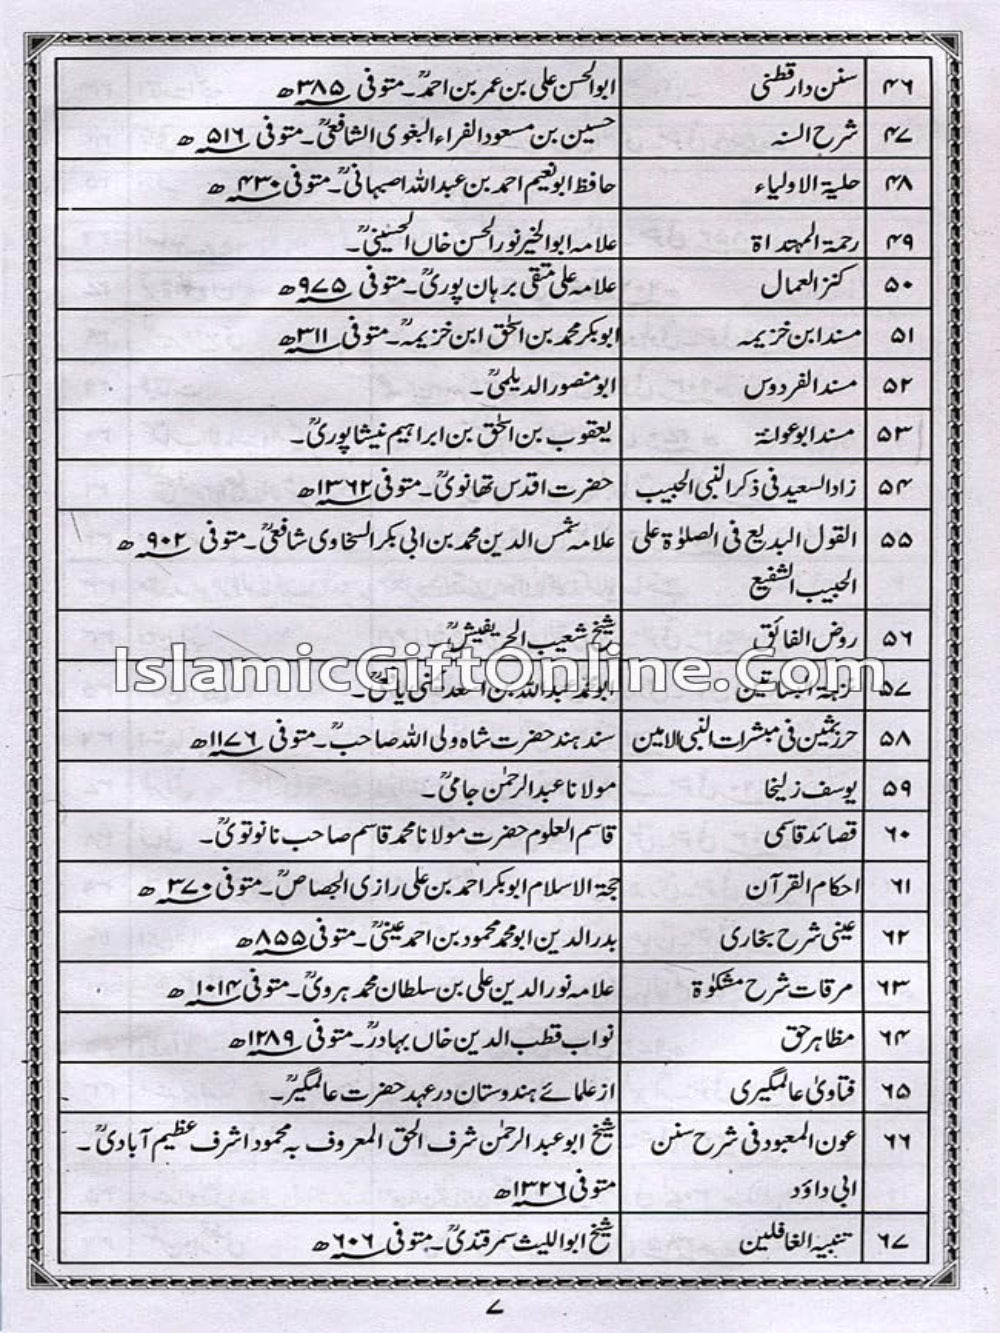 ۴۶ سنن دار قطنی ابوالحسن علی بن عمر بن احمدؒ۔ متوفی ۳۸۵ھ
۴۷ شرح السنہ حسین بن مسعود الفراء البغوی الشافعیؒ۔ متوفی ۵۱۶ھ
۴۸ حلیۃ الاولیاء حافظ ابونعیم احمد بن عبداللہ اصبہانیؒ۔ متوفی ۴۳۰ھ
۴۹ رحمۃ المہتداۃ علامہ ابوالخیر نورالحسن خاں الحسینیؒ۔
۵۰ کنز العمال علامہ علی متقی برہان پوریؒ۔ متوفی ۹۷۵ھ
۵۱ مسند ابن خزیمہ ابوبکر محمد بن اسحٰق ابن خزیمہؒ۔ متوفی ۳۱۱ھ
۵۲ مسند الفردوس ابومنصور الدیلمیؒ۔
۵۳ مسند ابوعوانۃ یعقوب بن اسحٰق بن ابراہیم نیشاپوریؒ۔
۵۴ زاد السعید فی ذکر النبی الحبیب حضرت اقدس تھانویؒ۔ متوفی ۱۳۶۲ھ
۵۵ القول البدیع فی الصلوٰۃ علی علامہ شمس الدین محمد بن ابی بکر السخاوی شافعیؒ۔ متوفی ۹۰۲ھ
الحبیب الشفیع
۵۶ روض الفائق شیخ شعیب الحریفیشؒ
IslamicGiftOnline.Com
۵۷ نزہۃ البساتین ابومحمد عبداللہ بن اسعد یمنی یافعیؒ۔
۵۸ حرز ثمین فی مبشرات النبی الامین سند ہند حضرت شاہ ولی اللہ صاحبؒ۔ متوفی ۱۱۷۶ھ
۵۹ یوسف زلیخا مولانا عبدالرحمٰن جامیؒ۔
۶۰ قصائد قاسمی قاسم العلوم حضرت مولانا محمد قاسم صاحب نانوتویؒ۔
۶۱ احکام القرآن حجۃ الاسلام ابوبکر احمد بن علی رازی الجصاصؒ۔ متوفی ۳۷۰ھ
۶۲ عینی شرح بخاری بدرالدین ابومحمد محمود بن احمد عینیؒ۔ متوفی ۸۵۵ھ
۶۳ مرقات شرح مشکوٰۃ علامہ نورالدین علی بن سلطان محمد ہرویؒ۔ متوفی ۱۰۱۴ھ
۶۴ مظاہر حق نواب قطب الدین خاں بہادرؒ۔ متوفی ۱۲۸۹ھ
۶۵ فتاویٰ عالمگیری از علمائے ہندوستان در عہد حضرت عالمگیرؒ۔
۶۶ عون المعبود فی شرح سنن شیخ ابو عبدالرحمٰن شرف الحق المعروف بہ محمود اشرف عظیم آبادیؒ۔
ابی داؤد متوفی ۱۳۲۶ھ
۶۷ تنبیہ الغافلین شیخ ابواللیث سمرقندیؒ۔ متوفی ۶۰۶ھ
۷